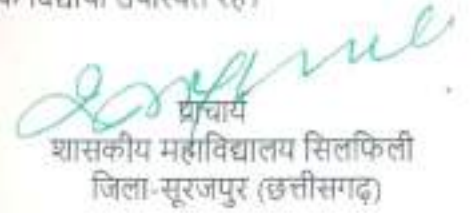 के विद्यार्थी उपस्थित रहे।
प्राचार्य
शासकीय महाविद्यालय सिलफिली
जिला-सूरजपुर (छत्तीसगढ़)